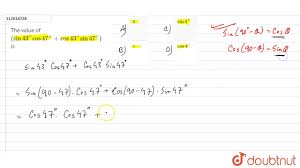 112616728
The value of
(sin 43° cos 47° + cos 43° sin 47°)
is
A)
B)
C)
Sin(90-θ) = Cosθ
Cos(90-θ) = Sinθ
Sin 43° Cos 47° + Cos 43° Sin 47°
= Sin(90-47). Cos 47° + Cos(90-47). Sin 47°
= Cos 47°. Cos 47° +
doubtnut